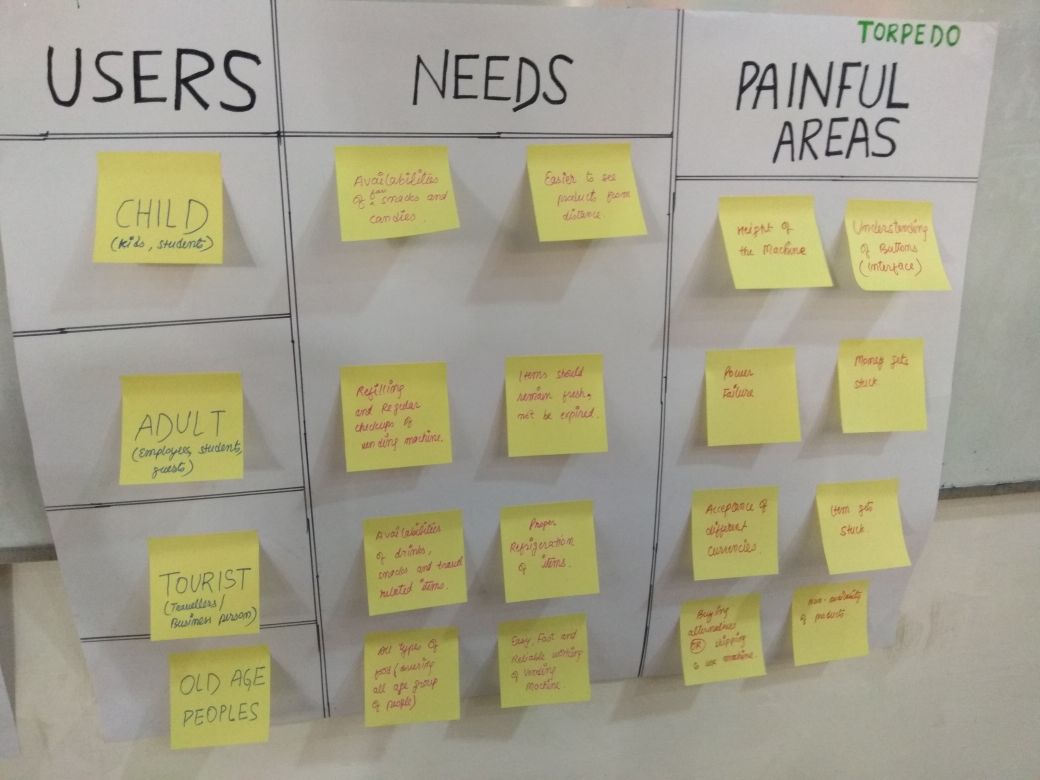 TORPEDO
USERS
NEEDS
PAINFUL
AREAS
CHILD
(Kids, Students)
Availabilities
Of few snacks and
candies.
Easier to see
products from
distance.
Height of
the Machine
Understanding
of Buttons
(Interface)
ADULT
(Employees, students,
guests)
Refilling
and Regular
checkups of
vending machine.
Items should
remain fresh,
not be expired.
Power
Failure
Money gets
stuck.
TOURIST
(Travellers/
Business person)
Availabilities
of drinks,
snacks and travel
related items.
Proper
Refrigeration
of items.
Acceptance of
different
currencies.
Item gets
Stuck.
OLD AGE
PEOPLES
All types of
food (covering
all age group
of people)
Easy, Fast and
Reliable working
of Vending
Machine.
Buying
alternatives
OR skipping
to use machine.
of products